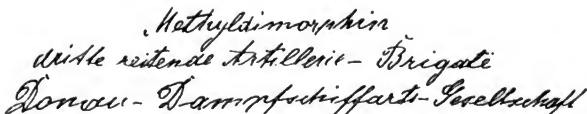 Methyldimorphin
dritte reitende Artillerie-Brigade
Donau-Dampfschiffarts-Gesellschaft